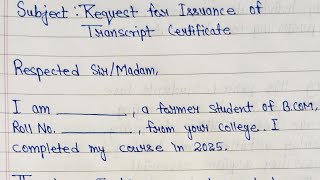 Subject : Request for Issuance of
Transcript Certificate
Respected Sir/Madam,
I am ________, a former student of B.COM,
Roll No. ________, from your college. I
completed my course in 2025.